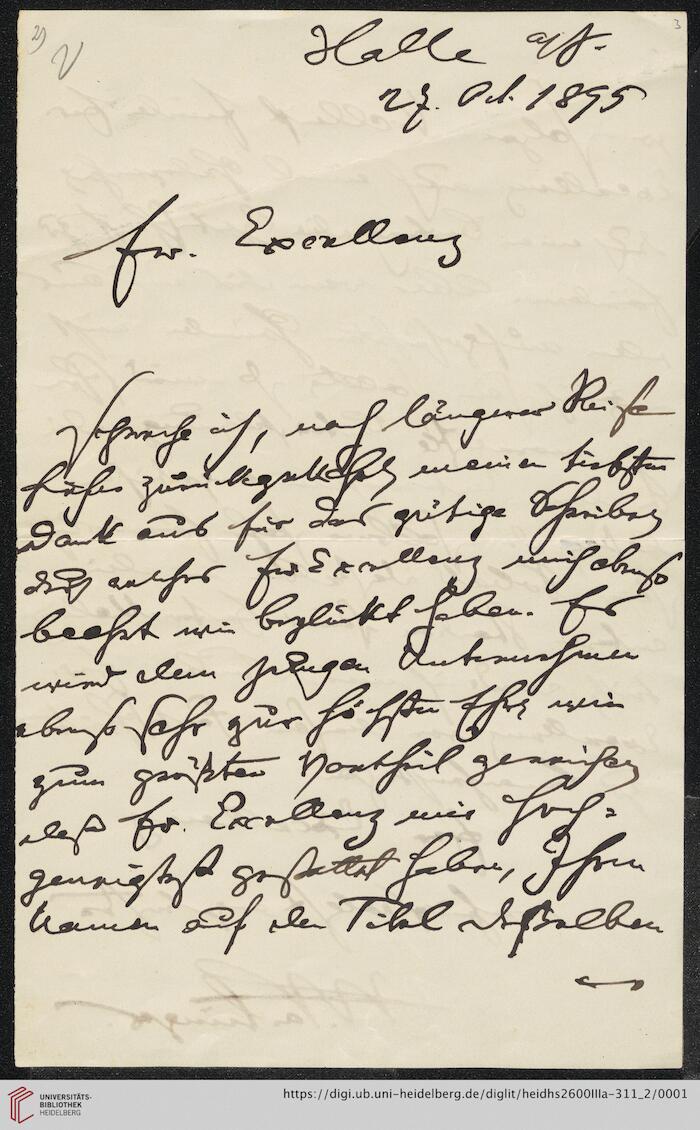 3
Halle a/S.
27. Oct. 1895
Ew. Excellenz
spreche ich, nach längerer Reise
hierher zurückgekehrt, meinen tiefsten
Dank aus für das gütige Schreiben
durch welches Ew Excellenz mich ebenso
beehrt wie beglückt haben. Es
wird dem jungen Unternehmen
ebenso sehr zur höchsten Ehre wie
zum größten Vortheil gereichen
daß Ew. Excellenz mir hoch-
geneigtest gestattet haben, Ihren
Namen auf den Titel desselben
UNIVERSITÄTS-
BIBLIOTHEK
HEIDELBERG
https://digi.ub.uni-heidelberg.de/diglit/heidhs2600IIIa-311_2/0001